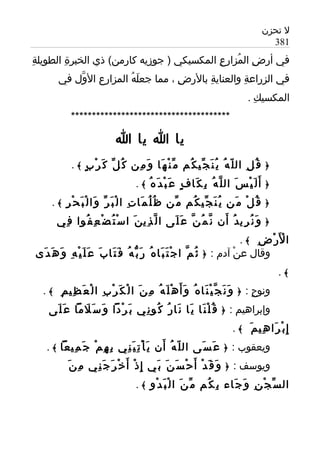 لا تحزن
381
في أرض المُزارع المكسيكي ) جوزيه كارمن( ذي الخبرةِ الطويلةِ
في الزراعةِ والعنايةِ بالأرض ، مما جعلَهُ المزارع الأوَّل في
المكسيكِ .
**************************************
يا الله يا الله
﴿ قُلِ اللّهُ يُنَجِّيكُم مِّنْهَا وَمِن كُلِّ كَرْبٍ ﴾ .
﴿ أَلَيْسَ اللَّهُ بِكَافٍ عَبْدَهُ ﴾ .
﴿ قُلْ مَن يُنَجِّيكُم مِّن ظُلُمَاتِ الْبَرِّ وَالْبَحْرِ ﴾ .
﴿ وَنُرِيدُ أَن نَّمُنَّ عَلَى الَّذِينَ اسْتُضْعِفُوا فِي
الْأَرْضِ ﴾ .
وقال عنْ آدم : ﴿ ثُمَّ اجْتَبَاهُ رَبُّهُ فَتَابَ عَلَيْهِ وَهَدَى
﴾ .
ونوح : ﴿ وَنَجَّيْنَاهُ وَأَهْلَهُ مِنَ الْكَرْبِ الْعَظِيمِ ﴾ .
وإبراهيم : ﴿ قُلْنَا يَا نَارُ كُونِي بَرْدًا وَسَلَامًا عَلَى
إِبْرَاهِيمَ ﴾ .
ويعقوب : ﴿ عَسَى اللّهُ أَن يَأْتِيَنِي بِهِمْ جَمِيعًا ﴾ .
ويوسف : ﴿ وَقَدْ أَحْسَنَ بَي إِذْ أَخْرَجَنِي مِنَ
السِّجْنِ وَجَاء بِكُم مِّنَ الْبَدْوِ ﴾ .